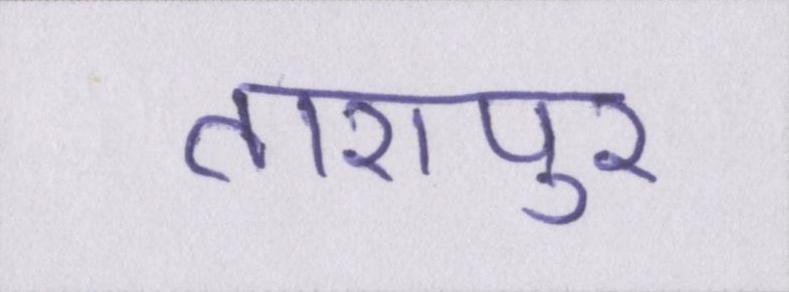 तारापुर